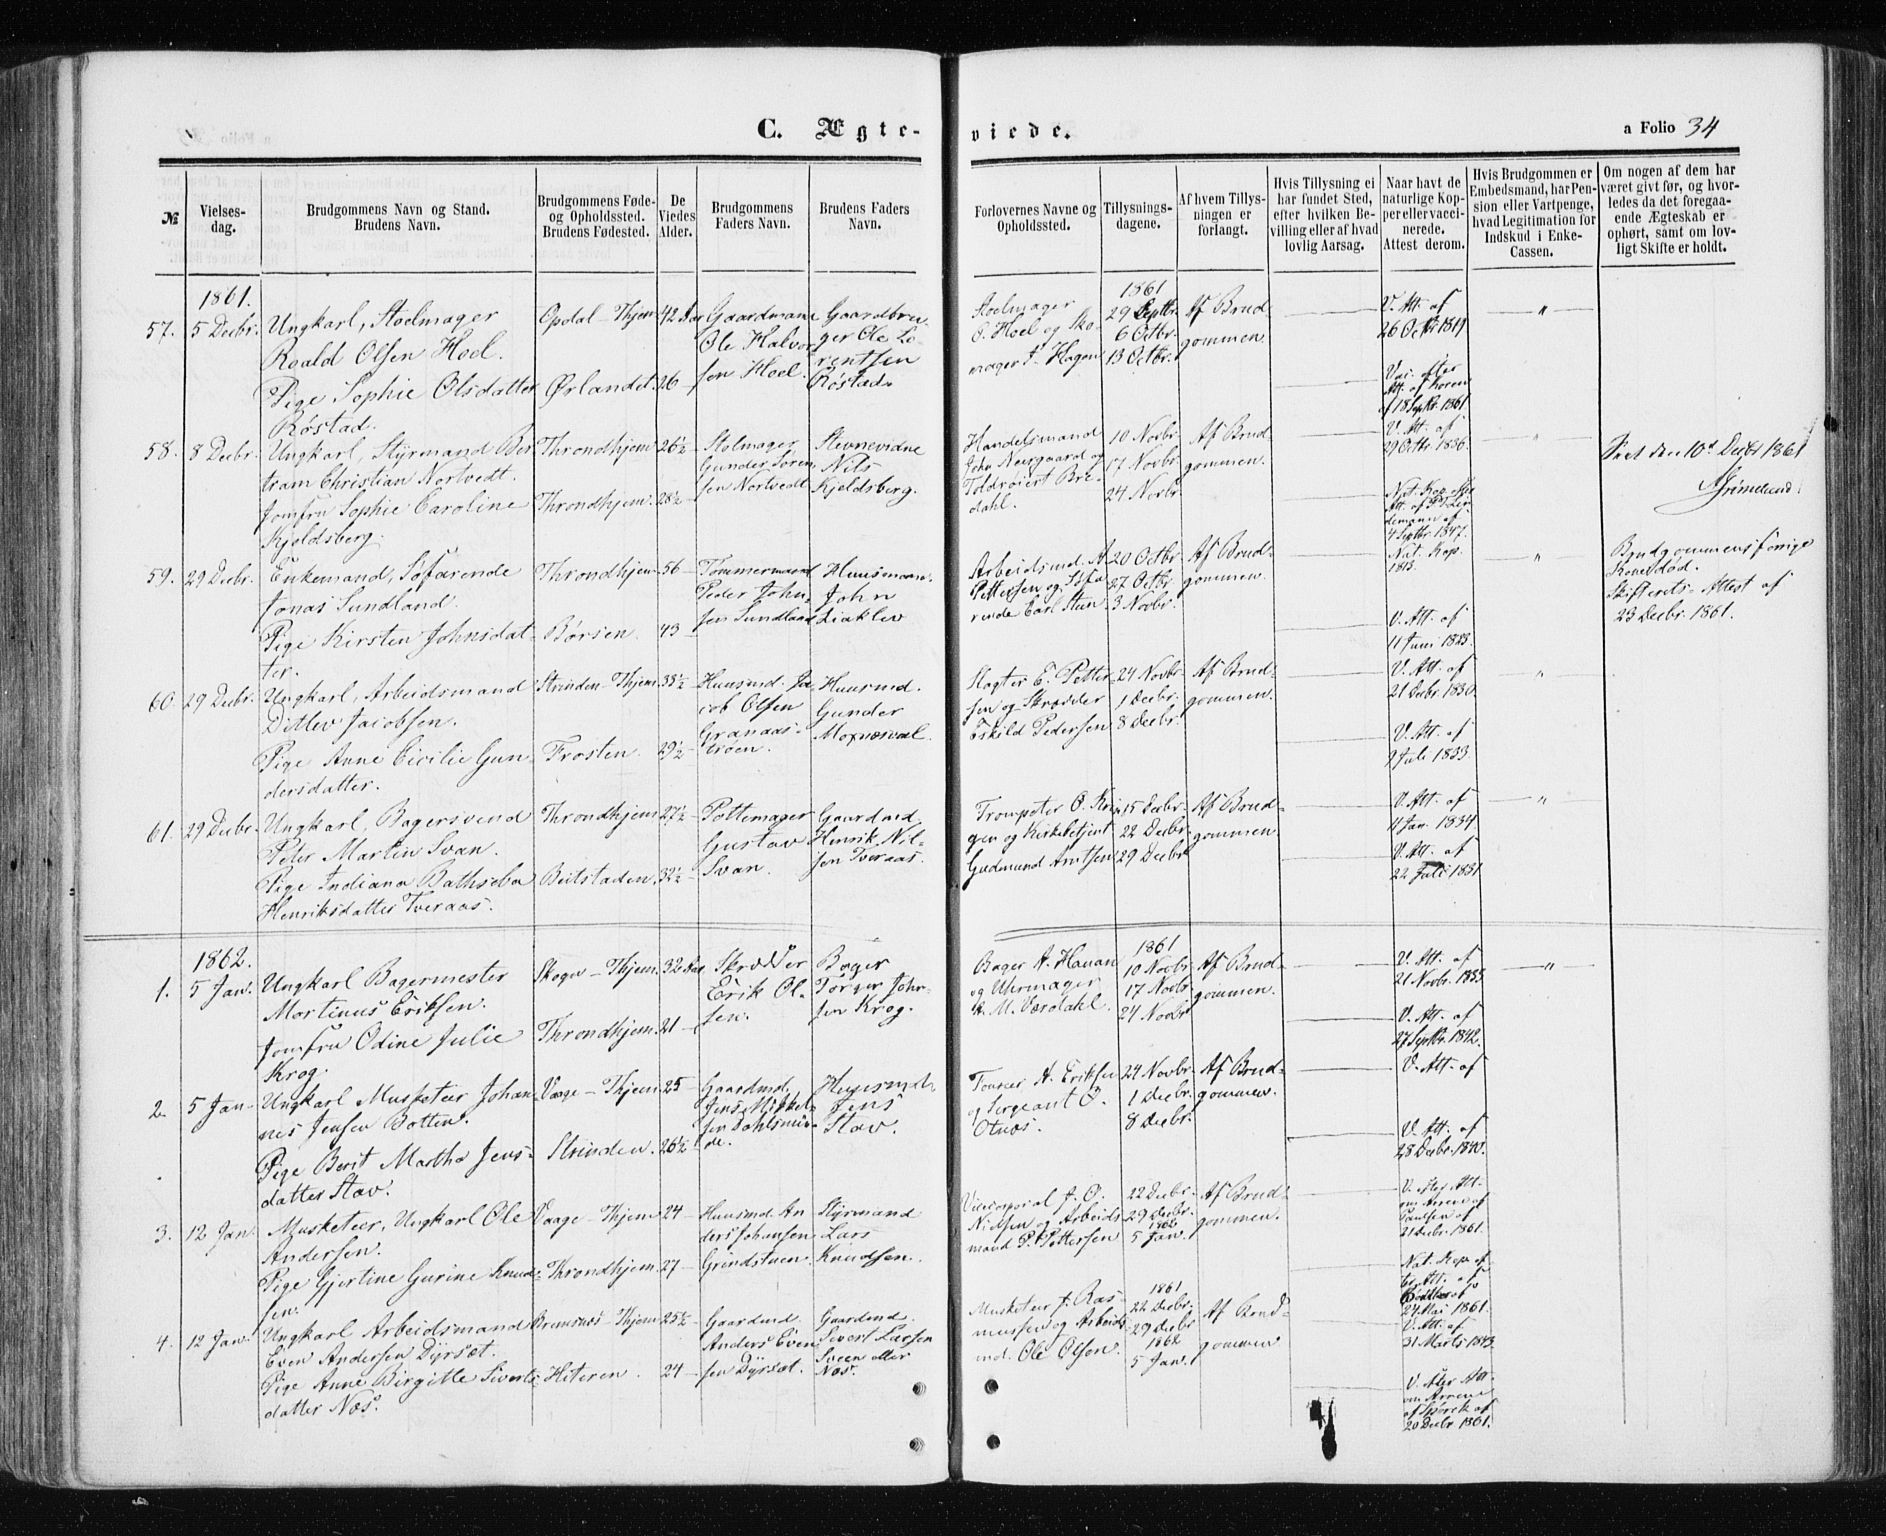 C. Ægte-
viede.
a Folio 34
№
Vielses-
dag.
Brudgommens Navn og Stand.
Brudens Navn.
Brudgommens Føde-
og Opholdssted.
Brudens Fødested.
De
Viedes
Alder.
Brudgommens
Faders Navn.
Brudens Faders
Navn.
Forlovernes Navne og
Opholdssted.
Tillysnings-
dagene.
Af hvem Tillys-
ningen er
forlangt.
Hvis Tillysning ei
har fundet Sted,
efter hvilken Be-
villing eller af hvad
lovlig Aarsag.
Naar havt de
naturlige Kop-
per eller vacci-
nerede.
Attest derom.
Hvis Brudgommen er
Embedsmand, har Pen-
sion eller Vartpenge,
hvad Legitimation for
Indskud i Enke-
Cassen.
Om nogen af dem har
været givt før, og hvor-
ledes da det foregaa-
ende Ægteskab er
ophørt, samt om lov-
ligt Skifte er holdt.
1861.
57. 5 Decbr.
Ungkarl, Stolmager
Roald Olsen Hoel.
Pige Sophie Olsdatter
Røstad.
Opdal - Thjem
Ørlandet.
42 Aar
26
Gaardmand
Ole Halvor
sen Hoel.
Gaardbru-
ger Ole Lo-
rentsen
Røstad.
Stolmager
O. Hoel og Sko-
mager J. Hagen
1861
29 Septbr.
6 Octbr.
13 Octbr.
Af Brud
gommen.
V. Att. af
26 Octbr 1819
Vac. efter
Att. af
af 18 Septbr. 1861
"
58. 8 Decbr.
Ungkarl, Styrmand Ber
tram Christian Nortvedt.
Jomfru Sophie Caroline
Kjeldsberg.
Throndhjem
Throndhjem
26½
28½
Stolmager
Gunder Søren
sen Nortvedt
Stevnevidne
Nils
Kjeldsberg.
Handelsmand
John Neergaard og
Toldroiert Bre-
dahl.
10 Novbr.
17 Novbr.
24 Novbr.
Af Brud-
gommen.
V. Att. af
29 Octbr. 1836.
Nat. Kop.
Att. af
4 Septbr. 1847.
"
den 10d Decbr 1861
Grimelund.
59. 29 Decbr.
Enkemand, Søfarende
Jonas Sundland.
Pige Kirsten Johnsdat-
ter.
Throndhjem
Børsen.
56
43
Tømmermand
Peder John-
sen Sundland
Huusmand.
John
Liaklev
Arbeidsmd. A
Pettersen og Søfa
rende Carl Steen
20 Octbr.
27 Octbr.
3 Novbr.
Af Brud-
gommen.
Nat. Kop.
1813.
V. Att. af
11 Juni 1823.
"
Brudgommens forrige
Kone død.
Skifterets-Attest af
23 Decbr. 1861.
60. 29 Decbr.
Ungkarl, Arbeidsmand
Ditlev Jacobsen.
Pige Anne Cicilie Gun-
dersdatter.
Strinden - Thjem
Frosten.
33½
29½
Huusmd. Ja
cob Olsen
Granaas-
trøen.
Huusmd.
Gunder
Moxnæsval.
Slagter E. Petter
sen og Skrædder
Eskild Pedersen
24 Novbr.
1 Decbr.
8 Decbr.
Af Brud-
gommen.
V. Att. af
21 Decbr. 1830.
V. Att. af
9 Juli 1833.
"
61. 29 Decbr.
Ungkarl, Bagersvend
Peter Martin Svan.
Pige Indiana Bathseba
Henriksdatter Tveraas.
Throndhjem
Beitstaden.
27½
32½
Pottemager
Gustav
Svan.
Gaardmd
Henrik Nil-
sen Tveraas.
Trompeter O. Krin
gen og Kirkebetjent
Gudmund Arntsen
15 Decbr.
22 Decbr.
29 Decbr.
Af Brud-
gommen.
V. Att. af
11 Jan. 1834
V. Att. af
22 Juli 1831
"
1862.
1. 5 Jan.
Ungkarl Bagermester
Martinus Eriksen.
Jomfru Odine Julie
Krog.
Skogn - Thjem
Throndhjem
32 Aar
21
Skrædder
Erik Ol-
sen.
Bager
Torger John-
sen Krog.
Bager A. Hauan
og Uhrmager
A. M. Værdahl.
1861
10 Novbr.
17 Novbr.
24 Novbr
Af Brud-
gommen.
V. Att. af
21 Novbr. 1833
V. Att. af
27 Septbr. 1842.
"
2. 5 Jan
Ungkarl Musketeer Johan-
nes Jensen Botten.
Pige Berit Martha Jens-
datter Stav.
Vaage - Thjem
Strinden.
25
26½
Gaardmd.
Jens Mikkel-
sen Dahlsmin-
de.
Huusmd.
Jens
Stav.
A. Eriksen
og Sergeant O.
Otnæs.
24 Novbr.
1 Decbr.
8 Decbr.
Af Brud-
gommen.
V. Att. af
V. Att. af
28 Decbr. 1840.
3. 12 Jan.
Musketeer, Ungkarl Ole
Andersen.
Pige Gjertine Gurine Knud-
sen.
Vaage - Thjem
Throndhjem
24
27
Huusmd. An
ders Johansen
Grindstuen
Styrmand
Lars
Knudsen.
Vicecorporal J. O.
Nielsen og Arbeids
mand P. Pettersen
22 Decbr.
29 Decbr.
1862
5 Jan.
Af Brud-
gommen.
V. efter Att.
om Arrene af
Paulsen af
21 Decbr. 1861.
Nat. Kop. ef-
ter Att. af
24 Mai 1861.
4. 12 Jan.
Ungkarl Arbeidsmand
Even Andersen Dyrsæt.
Pige Anne Birgitte Siverts-
datter Næs.
Bremsnæs - Thjem
Hiteren.
25½
24
Gaardmd.
Anders Even
sen Dyrsæt.
Gaardmd.
Sivert Larsen
Sveen eller
Næs.
Musketeer J. Ras-
mussen og Arbeids
md. Ole Olsen.
1861
22 Decbr.
29 Decbr
1862
5 Jan.
Af Brud-
gommen
V. Att. af
31 Marts 1843.
V. efter Att.
om Arrene
af Spørck af
20 Decbr 1861.